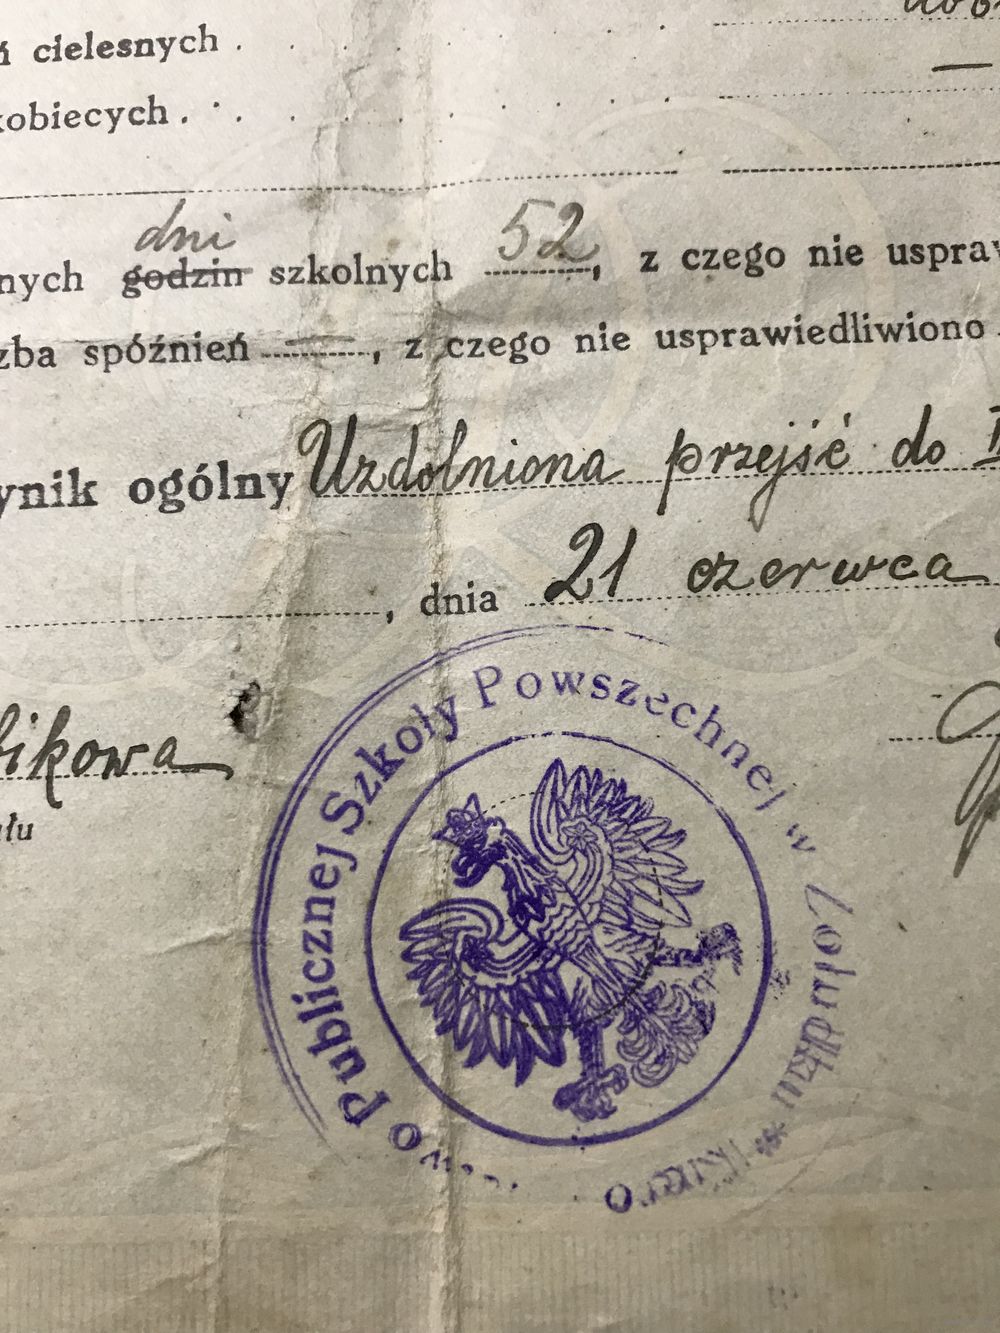 ń cielesnych
kobiecych
dni 52
nych godzin szkolnych , z czego nie uspraw
zba spóźnień , z czego nie usprawiedliwiono
ynik ogólny Uzdolniona przejść do
, dnia 21 czerwca
bikowa
ału
o Publicznej Szkoły Powszechnej w